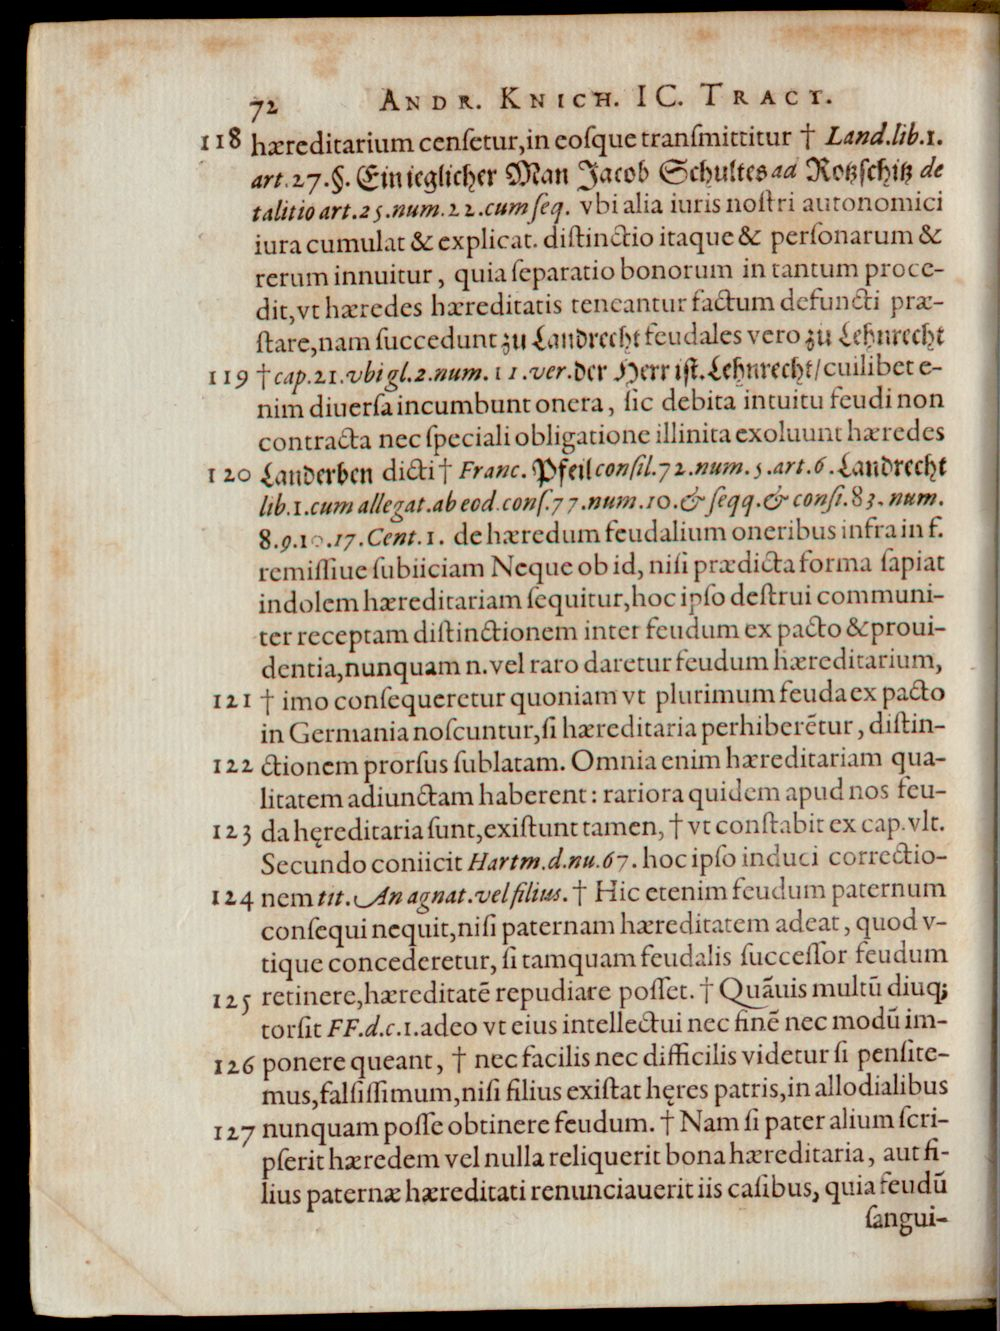 72 ANDR. KNICH. IC. TRACT.
118 hæreditarium censetur, in eosque transmittitur † Land. lib. 1.
art. 27. §. Ein ieglicher Man Jacob Schultes ad Rotzschitz de
talitio art. 25. num. 22. cum seq. vbi alia iuris nostri autonomici
iura cumulat & explicat. distinctio itaque & personarum &
rerum innuitur, quia separatio bonorum in tantum proce-
dit, vt hæredes hæreditatis teneantur factum defuncti præ-
stare, nam succedunt zu Landrecht feudales vero zu Lehnrecht
119 † cap. 21. vbi gl. 2. num. 11. ver. der Herr ist. Lehnrecht/ cuilibet e-
nim diuersa incumbunt onera, sic debita intuitu feudi non
contracta nec speciali obligatione illinita exoluunt hæredes
120 Landerben dicti † Franc. Pfeil consil. 72. num. 5. art. 6. Landrecht
lib. 1. cum allegat. ab eod. cons. 77. num. 10. & seqq. & consi. 83. num.
8. 9. 10. 17. Cent. 1. de hæredum feudalium oneribus infra in f.
remissiue subiiciam Neque ob id, nisi prædicta forma sapiat
indolem hæreditariam sequitur, hoc ipso destrui communi-
ter receptam distinctionem inter feudum ex pacto & proui-
dentia, nunquam n. vel raro daretur feudum hæreditarium,
121 † imo consequeretur quoniam vt plurimum feuda ex pacto
in Germania noscuntur, si hæreditaria perhiberētur, distin-
122 ctionem prorsus sublatam. Omnia enim hæreditariam qua-
litatem adiunctam haberent: rariora quidem apud nos feu-
123 da hęreditaria sunt, existunt tamen, † vt constabit ex cap. vlt.
Secundo coniicit Hartm. d. nu. 67. hoc ipso induci correctio-
124 nem tit. An agnat. vel filius. † Hic etenim feudum paternum
consequi nequit, nisi paternam hæreditatem adeat, quod v-
tique concederetur, si tamquam feudalis successor feudum
125 retinere, hæreditatē repudiare posset. † Quāuis multū diuq;
torsit FF. d. c. 1. adeo vt eius intellectui nec finē nec modū im-
126 ponere queant, † nec facilis nec difficilis videtur si pensite-
mus, falsissimum, nisi filius existat hęres patris, in allodialibus
127 nunquam posse obtinere feudum. † Nam si pater alium scri-
pserit hæredem vel nulla reliquerit bona hæreditaria, aut fi-
lius paternæ hæreditati renunciauerit iis casibus, quia feudū
sangui-